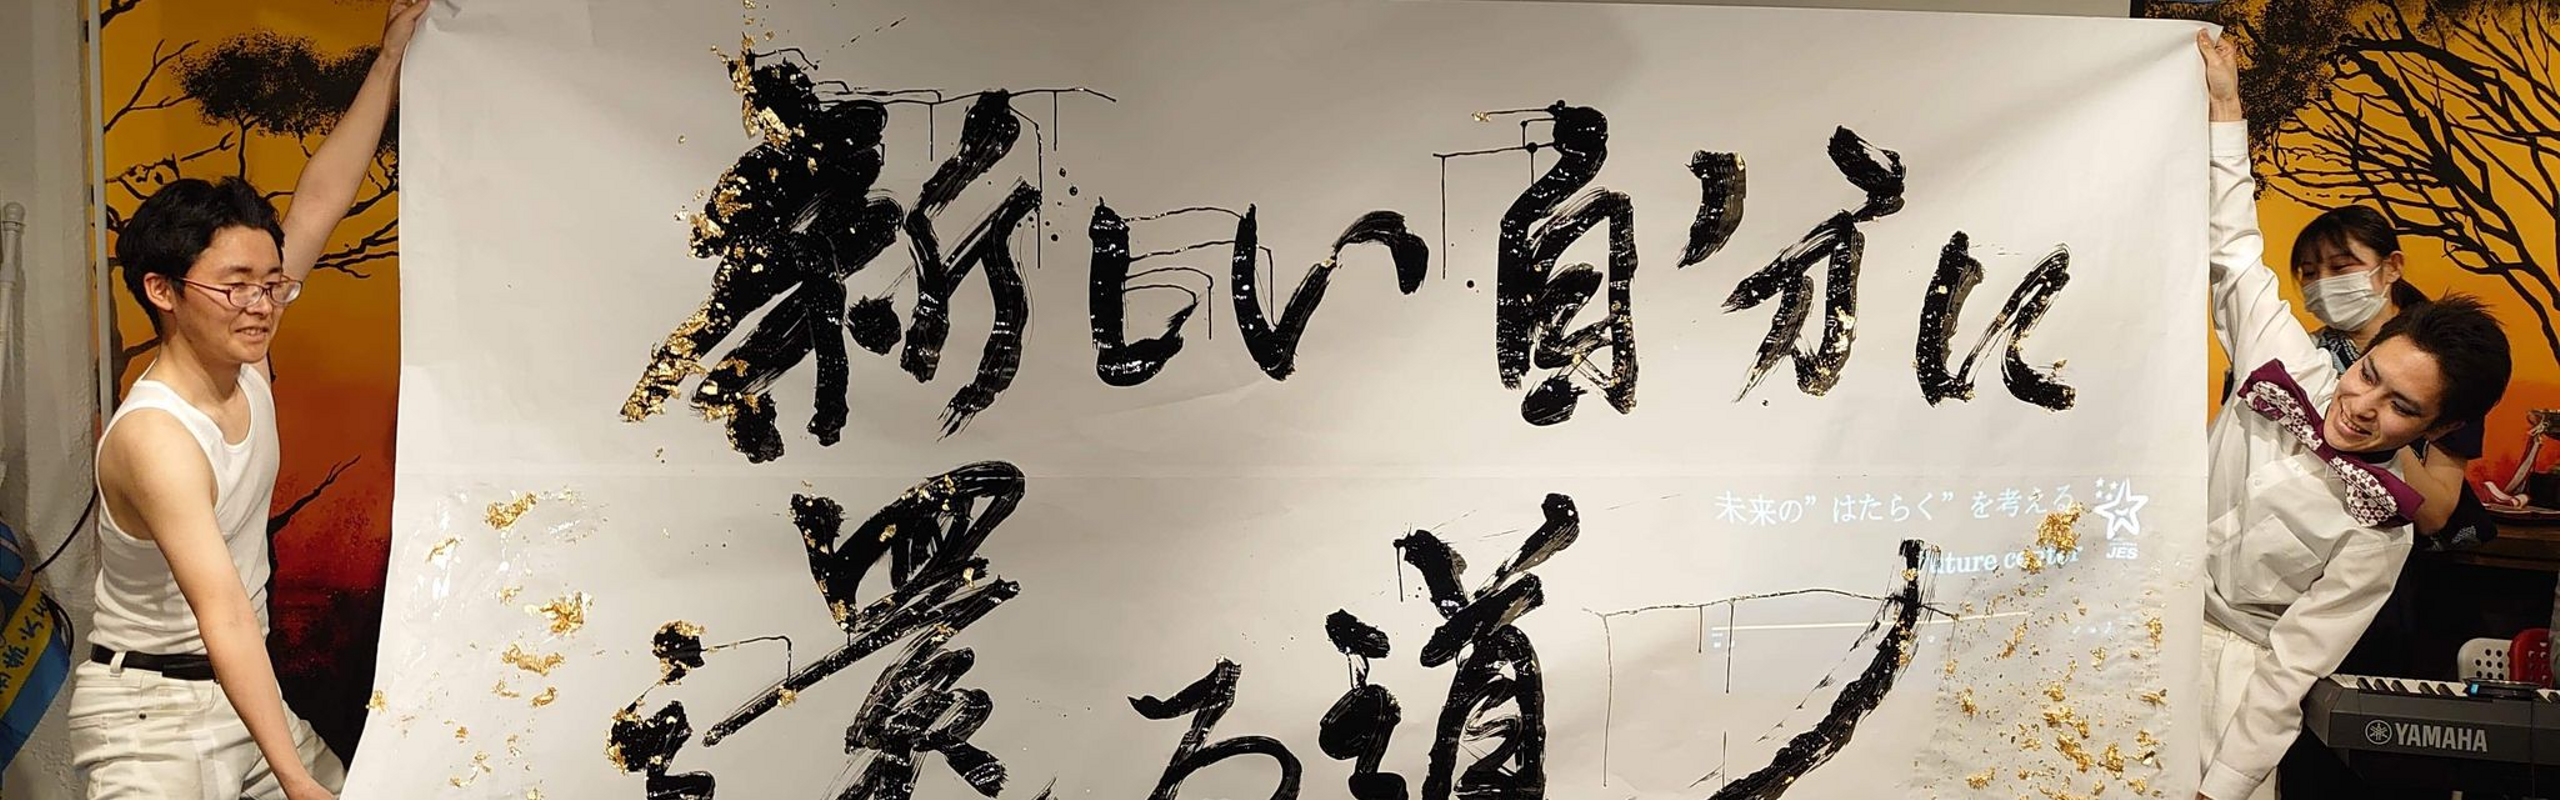 新しい自分に
還る道ノ
未来の”はたらく”を考える
future center
JES
YAMAHA